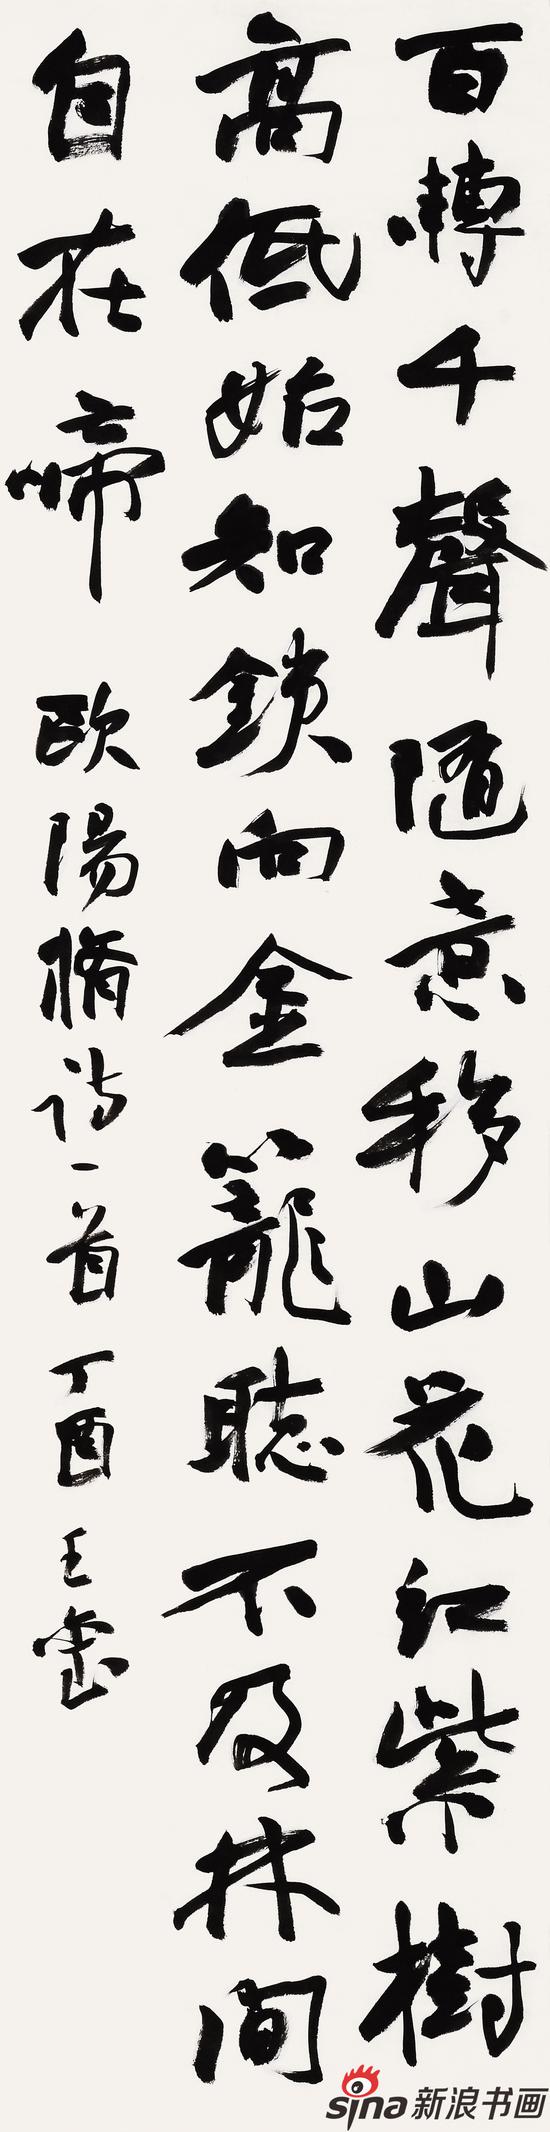 百囀千聲隨意移山花紅紫樹
高低始知鎖向金籠聽不及林間
自在啼 歐陽脩詩一首 丁酉 王
sina 新浪书画